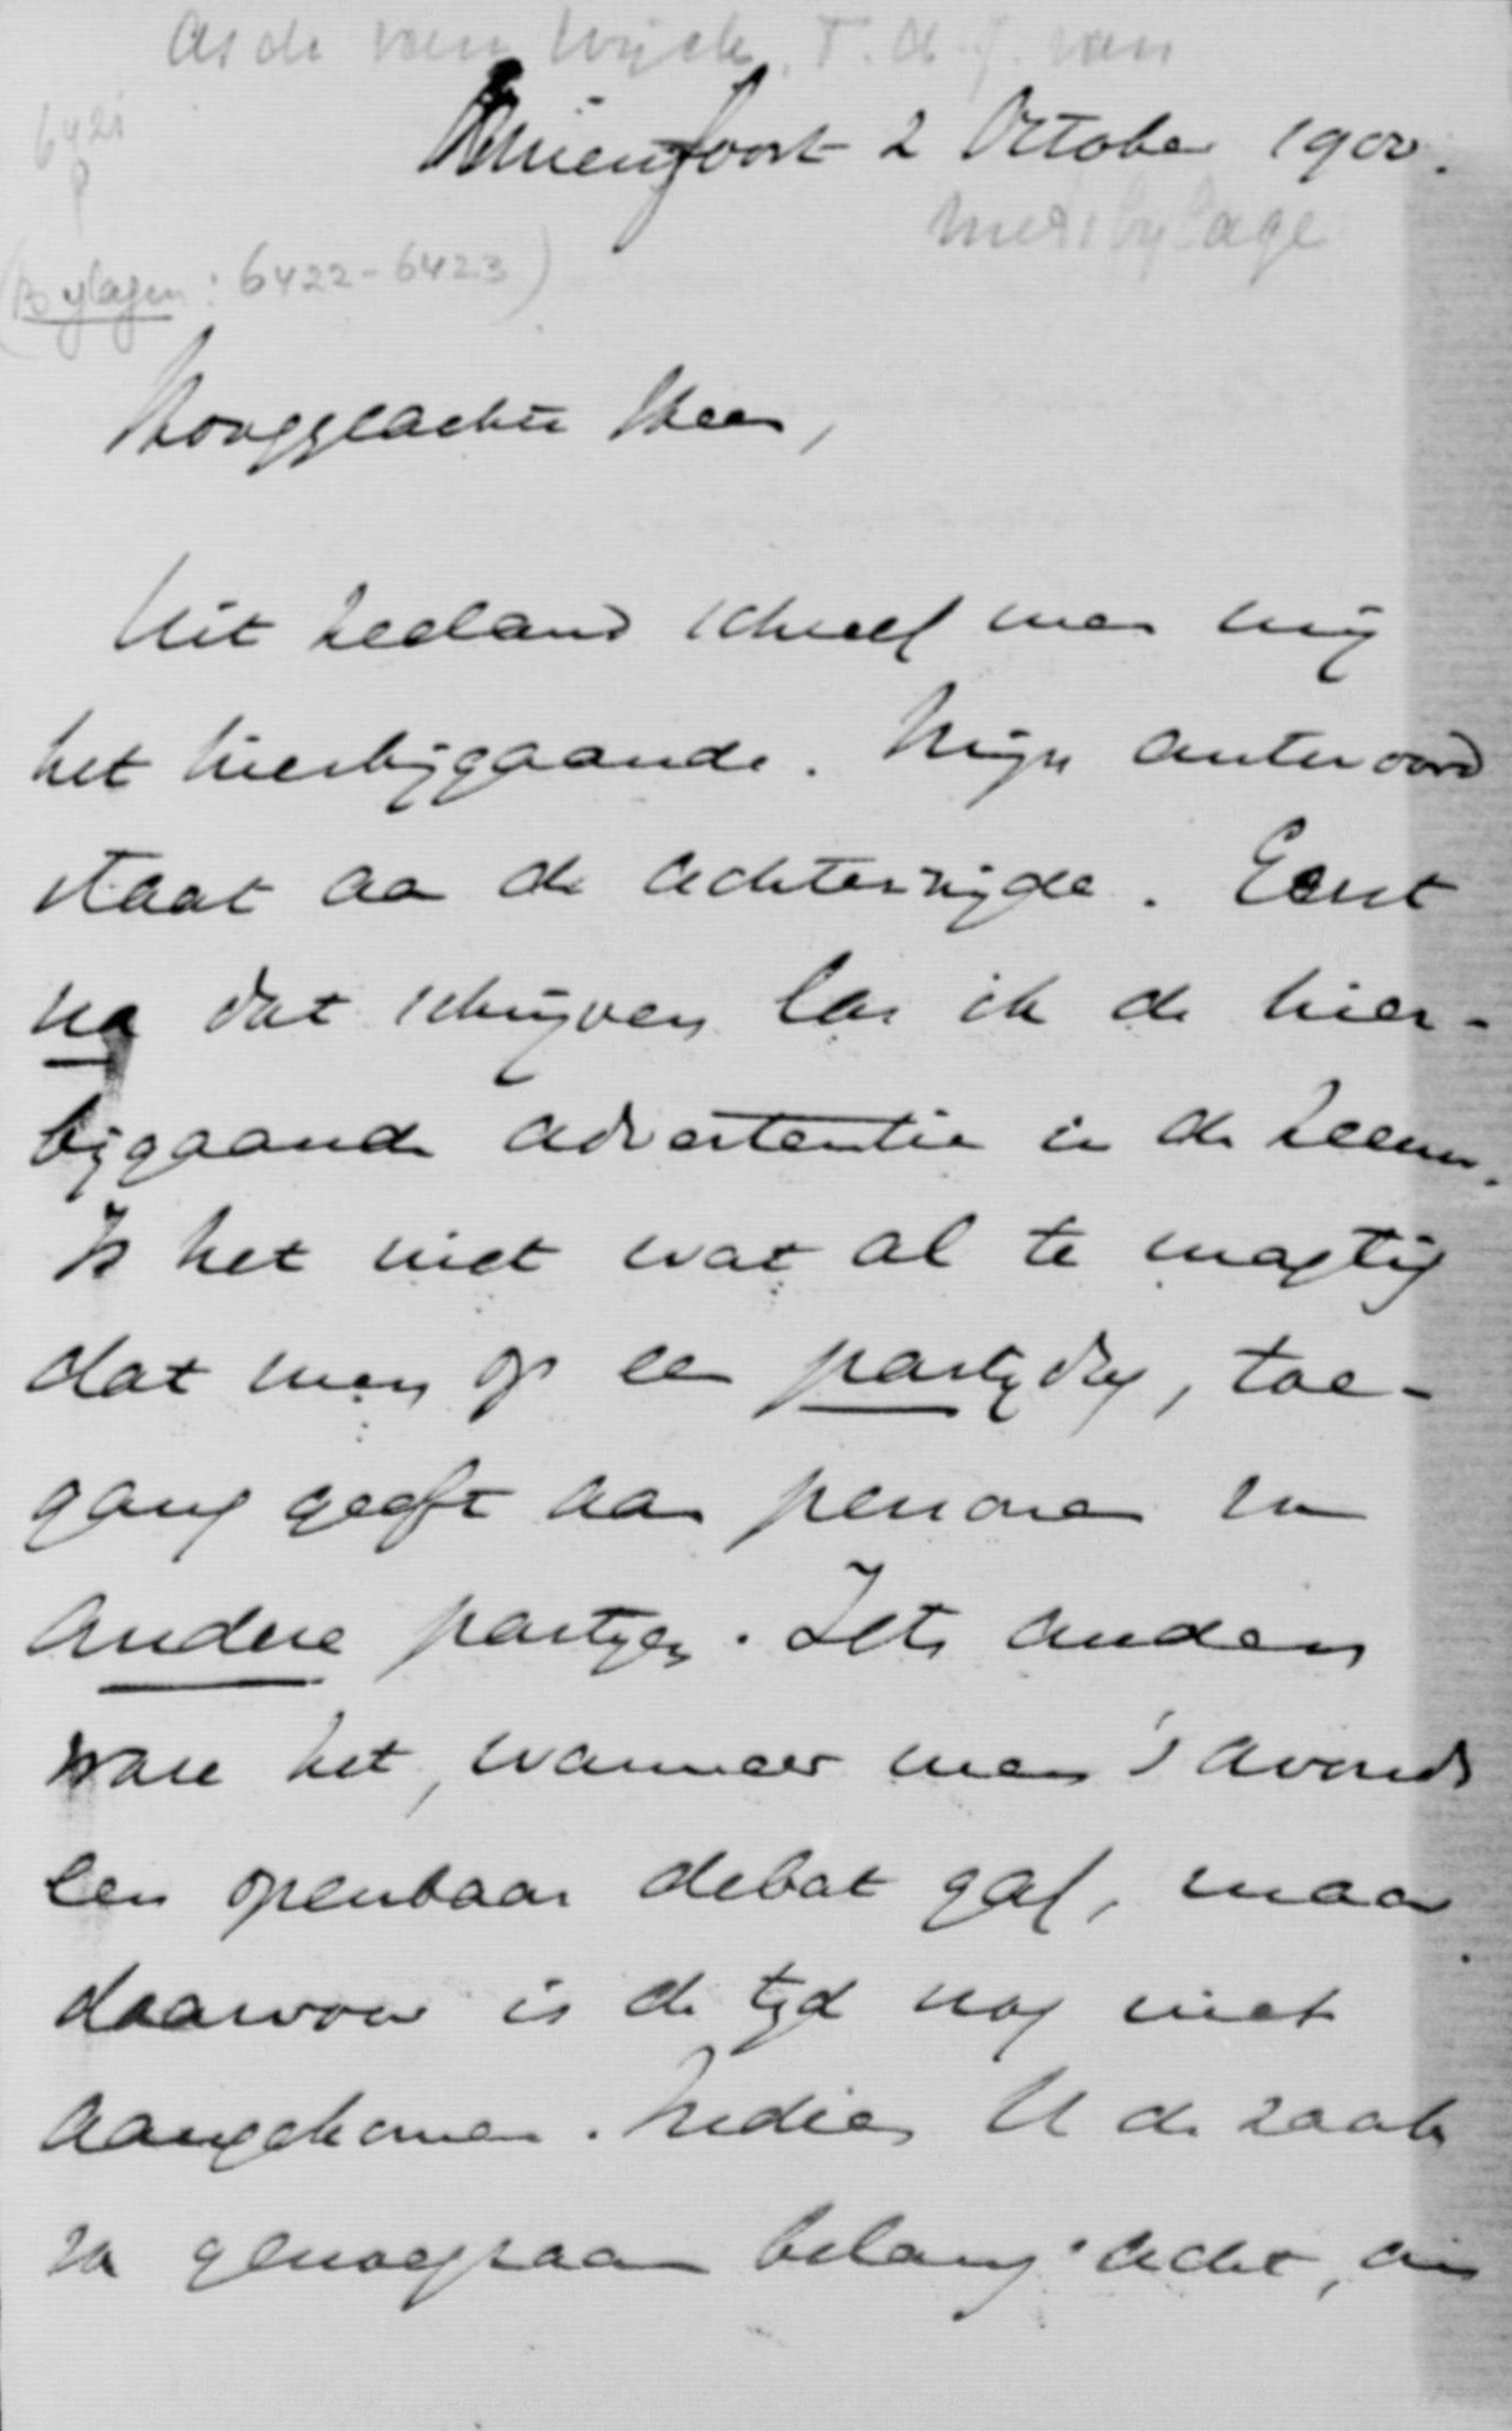 Asch van Wijck, T. A. J. van
6421
Amersfoort 2 October 1900.
met bylage
(Bylagen: 6422-6423)
Hooggeachte Heer,
Uit Zeeland schreef men mij
het hierbijgaande. Mijn antwoord
staat aa de achterzijde. Eerst
na dat schrijven las ik de hier-
bijgaande advertentie in de Zeeuw.
Is het niet wat al te magtig
dat men op een partijdag, toe-
gang geeft aan personen van
andere partijen. Iets anders
ware het, wanneer men 's avonds
een openbaar debat gaf, maar
daarvoor is de tijd nog niet
aangekomen. Indien U de zaak
van genoegzaam belang acht, om